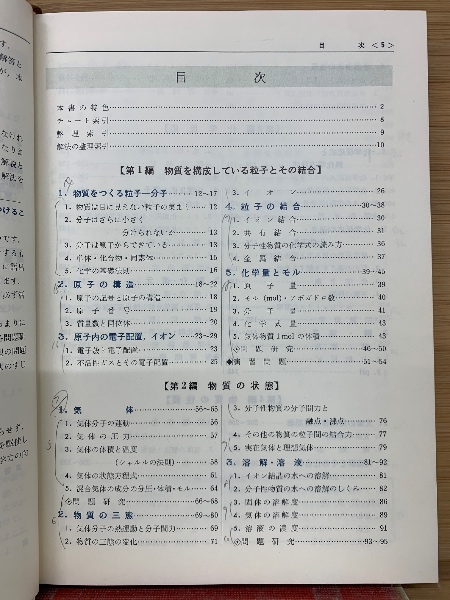 目　次 <5>
目　次
本書の特色 2
チャート索引 8
整理索引 9
解法の整理索引 10
【第1編　物質を構成している粒子とその結合】
1. 物質をつくる粒子—分子 12〜17
1. 物質は目に見えない粒子の集まり 12
2. 分子はさらに小さく
分けられないか 13
3. 分子は原子からできている 13
4. 単体・化合物・同素体 15
5. 化学の基礎法則 16
2. 原子の構造 18〜22
1. 原子の記号と原子の構造 18
2. 原子番号 19
3. 質量数と同位体 20
3. 原子内の電子配置，イオン 23〜29
1. 電子殻と電子配置 23
2. 不活性ガスとその電子配置 25
3. イオン 26
4. 粒子の結合 30〜38
1. イオン結合 30
2. 共有結合 31
3. 分子性物質の化学式の読み方 36
4. 金属結合 37
5. 化学量とモル 39〜45
1. 原子量 39
2. モル(mol)・アボガドロ数 40
3. 分子量 41
4. 化学式量 43
5. 気体物質1molの体積 43
問題研究 46〜50
◆演習問題 51〜54
【第2編　物質の状態】
1. 気体 56〜65
1. 気体分子の運動 56
2. 気体の圧力 57
3. 気体の体積と温度
(シャルルの法則) 58
4. 気体の状態方程式 61
5. 混合気体の成分の分圧・体積・モル 64
問題研究 66〜68
2. 物質の三態 69〜80
1. 気体分子の熱運動と分子間力 69
2. 物質の三態の変化 71
3. 分子性物質の分子間力と
融点・沸点 76
4. その他の物質の粒子間の結合力 77
5. 実在気体と理想気体 79
3. 溶解・溶液 81〜92
1. イオン結晶の水への溶解 81
2. 分子性物質の水への溶解のしくみ 82
3. 固体の溶解度 86
4. 気体の溶解度 89
5. 溶液の濃度 91
問題研究 93〜95